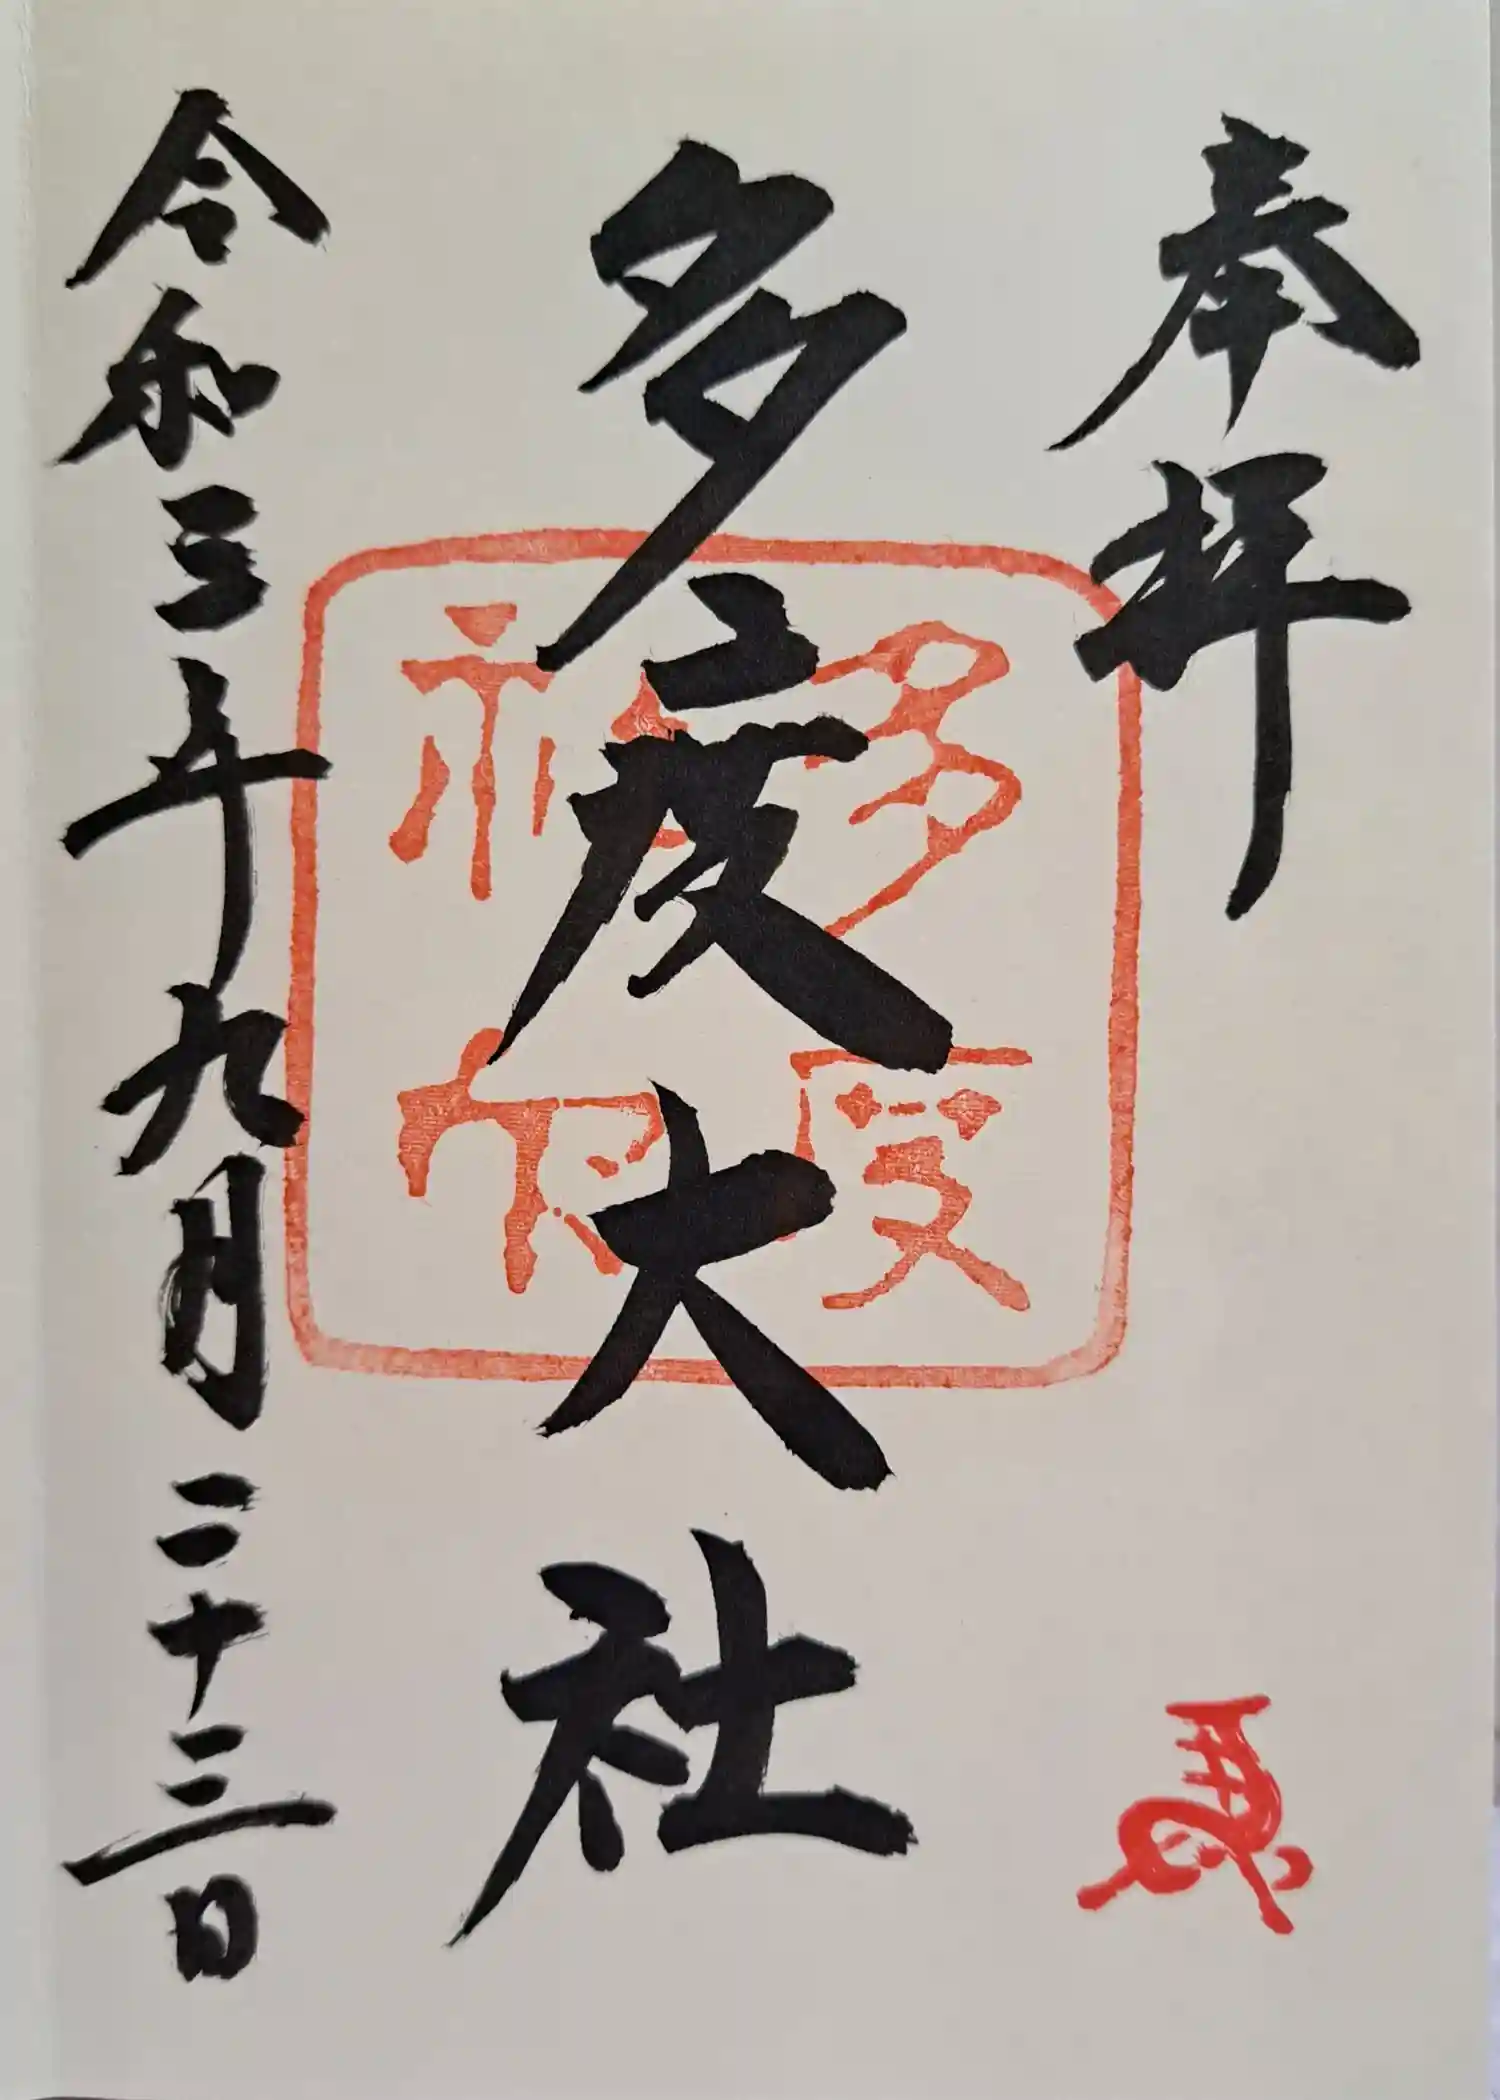 奉拝
多度大社
令和三年九月二十三日
多度
神
馬